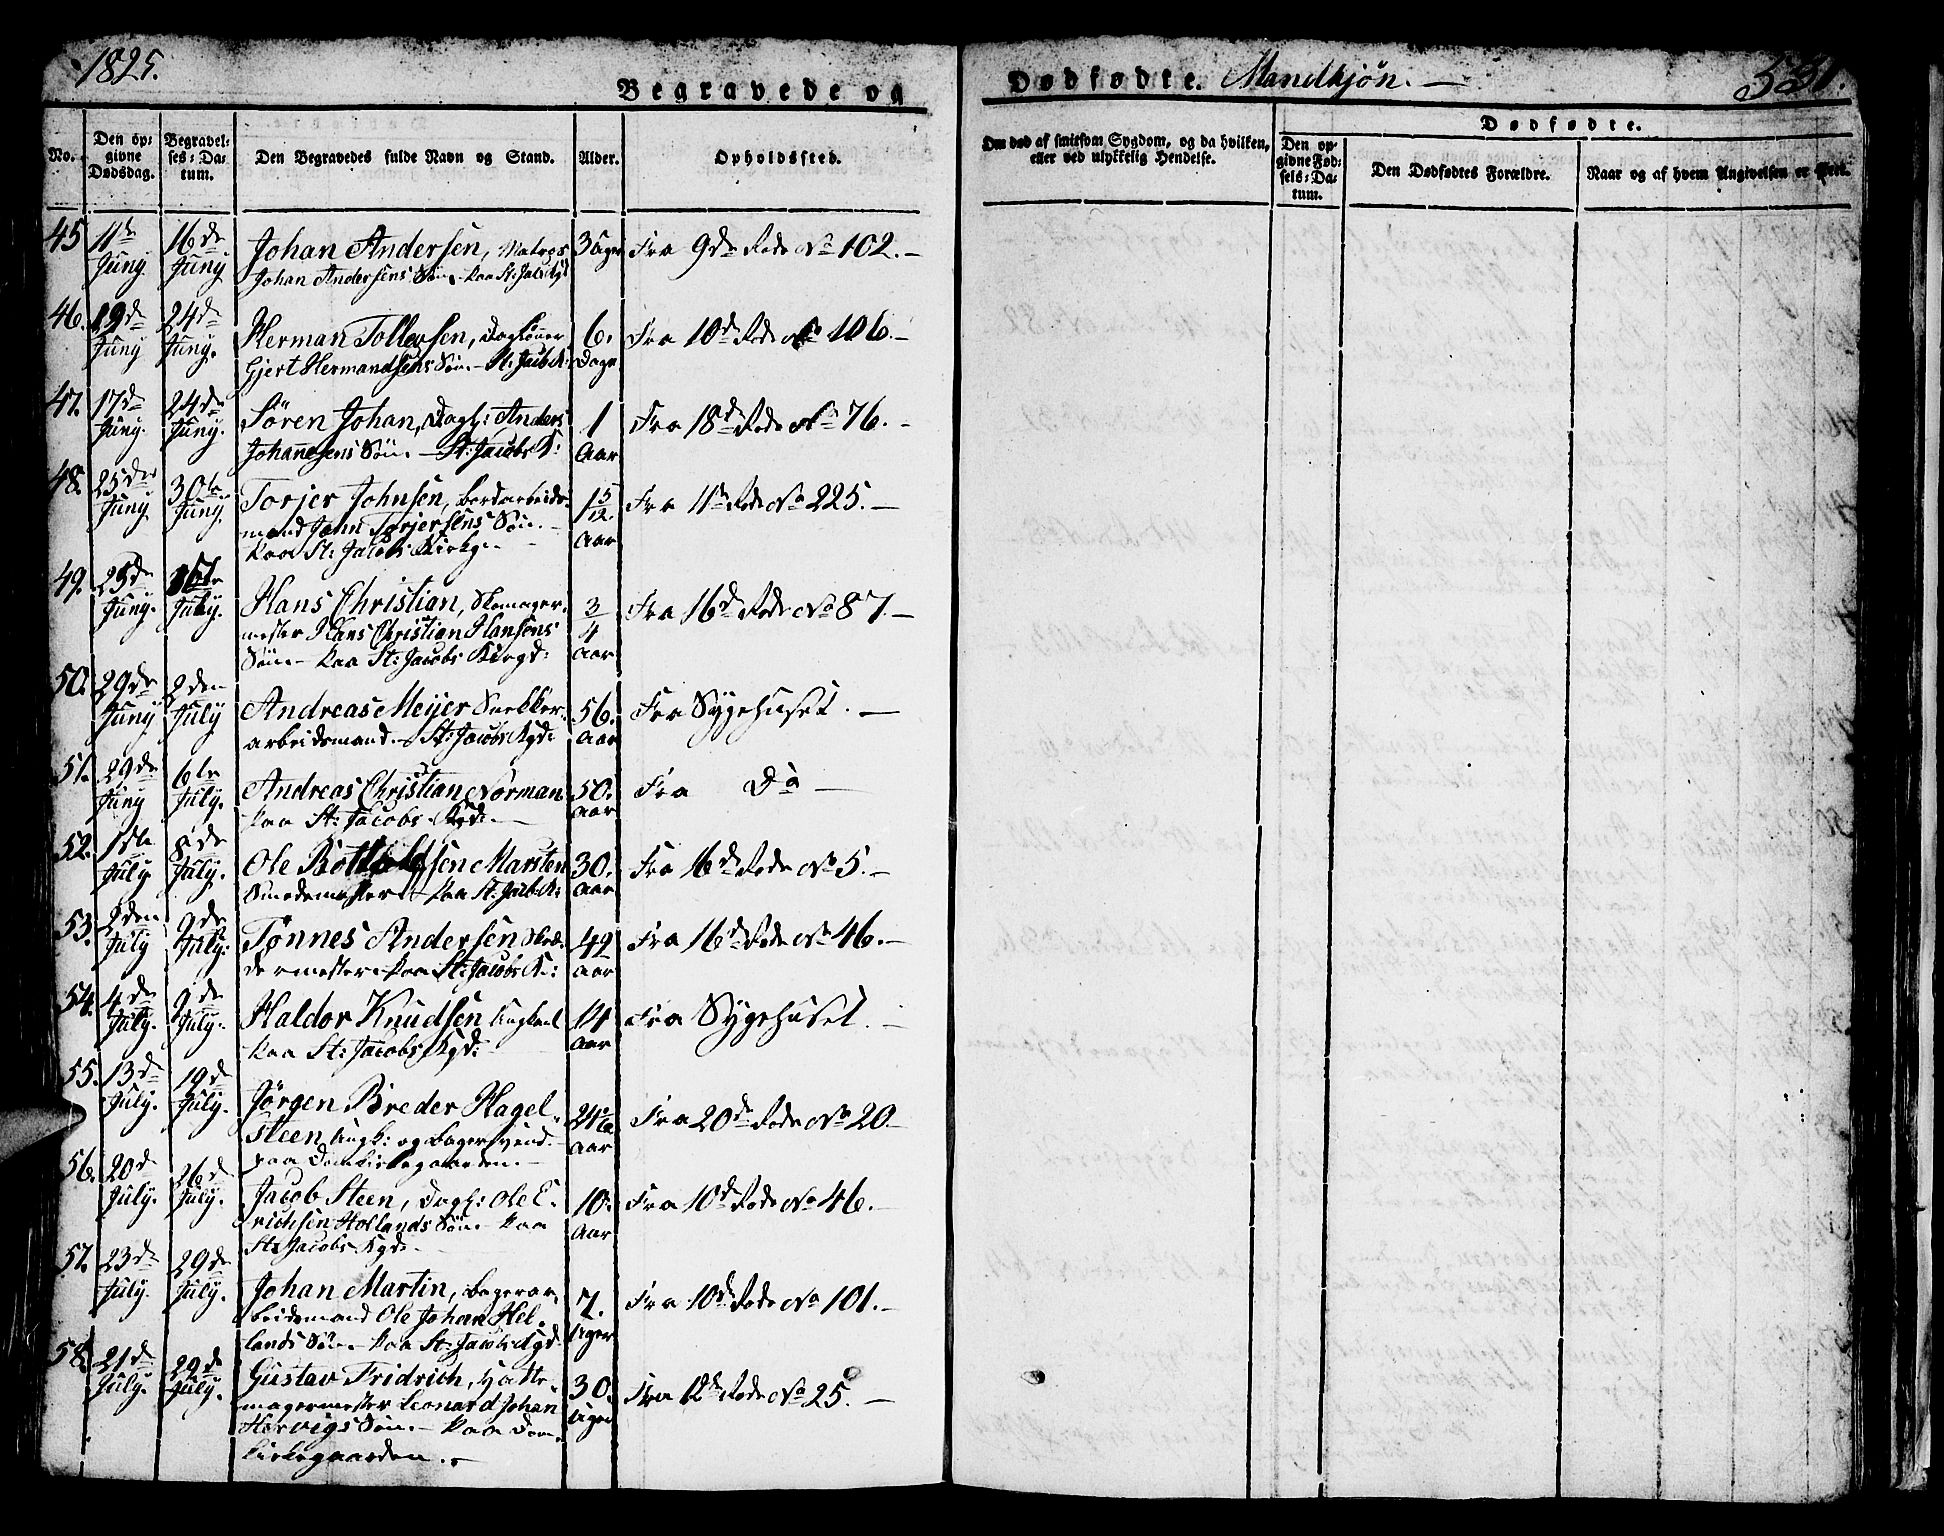 1825.
Begravede og
Dødfødte. Mandkjøn. —
551.
No.
Den op=
givne
Dødsdag.
Begravel=
ses=Da=
tum.
Den Begravedes fulde Navn og Stand.
Alder.
Opholdssted.
Om død af smitsom Sygdom, og da hvilken,
eller ved ulykkelig Hendelse.
Dødfødte.
Den op=
givne Fød=
sels=Da=
tum.
Den Dødfødtes Forældre.
Naar og af hvem Angivelsen er skeet.
45 11te Juny 16de Juny Johan Andersen, Matros Johan Andersens Søn. paa St: Jacobs Kgd 3 Uger Fra 9de Rode No 102. —
46. 19de Juny 24de Juny. Herman Tollevsen, Dagløner Gjert Hermandsens Søn. — St: Jacob K: 6. Dage Fra 10de Rode No 106. —
47. 17de Juny. 24de Juny. Søren Johan, Dagl: Anders Johannesens Søn. — St: Jacobs K: 1 Aar Fra 18de Rode No 76. —
48. 25de Juny 30te Juny Torjer Johnsen, bordarbeids=
mand John Torjersens Søn. —
paa St: Jacobs Kirkg: — 1 5/12 Aar Fra 11te Rode No 225. —
49. 25de Juny. July. Hans Christian, Skomager=
mester Hans Christian Hansens
Søn. — paa St: Jacobs Kirgd: 3/4 Aar Fra 16de Rode No 87. —
50. 29de Juny 2den July Andreas Meyer Snekker=
arbeidsmand. — St: Jacobs Kgd: 56. Aar Fra Sygehuset. —
51. 29de Juny 6te July. Andreas Christian Norman
paa St: Jacobs Kgd: — 50. Aar Fra Do —
52. 1ste July 8de July. Ole Marsten
Smedemester — paa St: Jacb: K: 30. Aar Fra 16de Rode No 5. —
53. 2den July 9de July: Tønnes Andersen Skræ=
dermester. paa St: Jacobs K: 49 Aar Fra 16de Rode No 46. —
54. 4de July. 9de July. Haldor Knudsen Ungkarl
paa St: Jacobs Kgd: 14 Aar Fra Sygehuset. —
55. 13de July. 19de July. Jørgen Breder Hagel=
steen, Ungk: og bagersvend. —
paa Domkirkegaarden. — 24 Aar Fra 20de Rode No 20. —
56. 20de July. 26de July. Jacob Steen, Dagl: Ole E=
richsen Hollands Søn. — paa
St: Jacobs Kgd: — 10. Aar Fra 10de Rode No 46. —
57. 23de July. 29de July. Johan Martin, bagerar=
beidsmand Ole Johan Hel=
lands Søn. — paa St: Jacobs Kgd 7. Uger Fra 10de Rode No 101. —
58. 21de July. 29de July. Gustav Fridrich, Hatte=
magermester Leonard Johan
Hervigs Søn. — paa Dom=
kirkegaarden. — 30. Uger Fra 12de Rode No 25. —